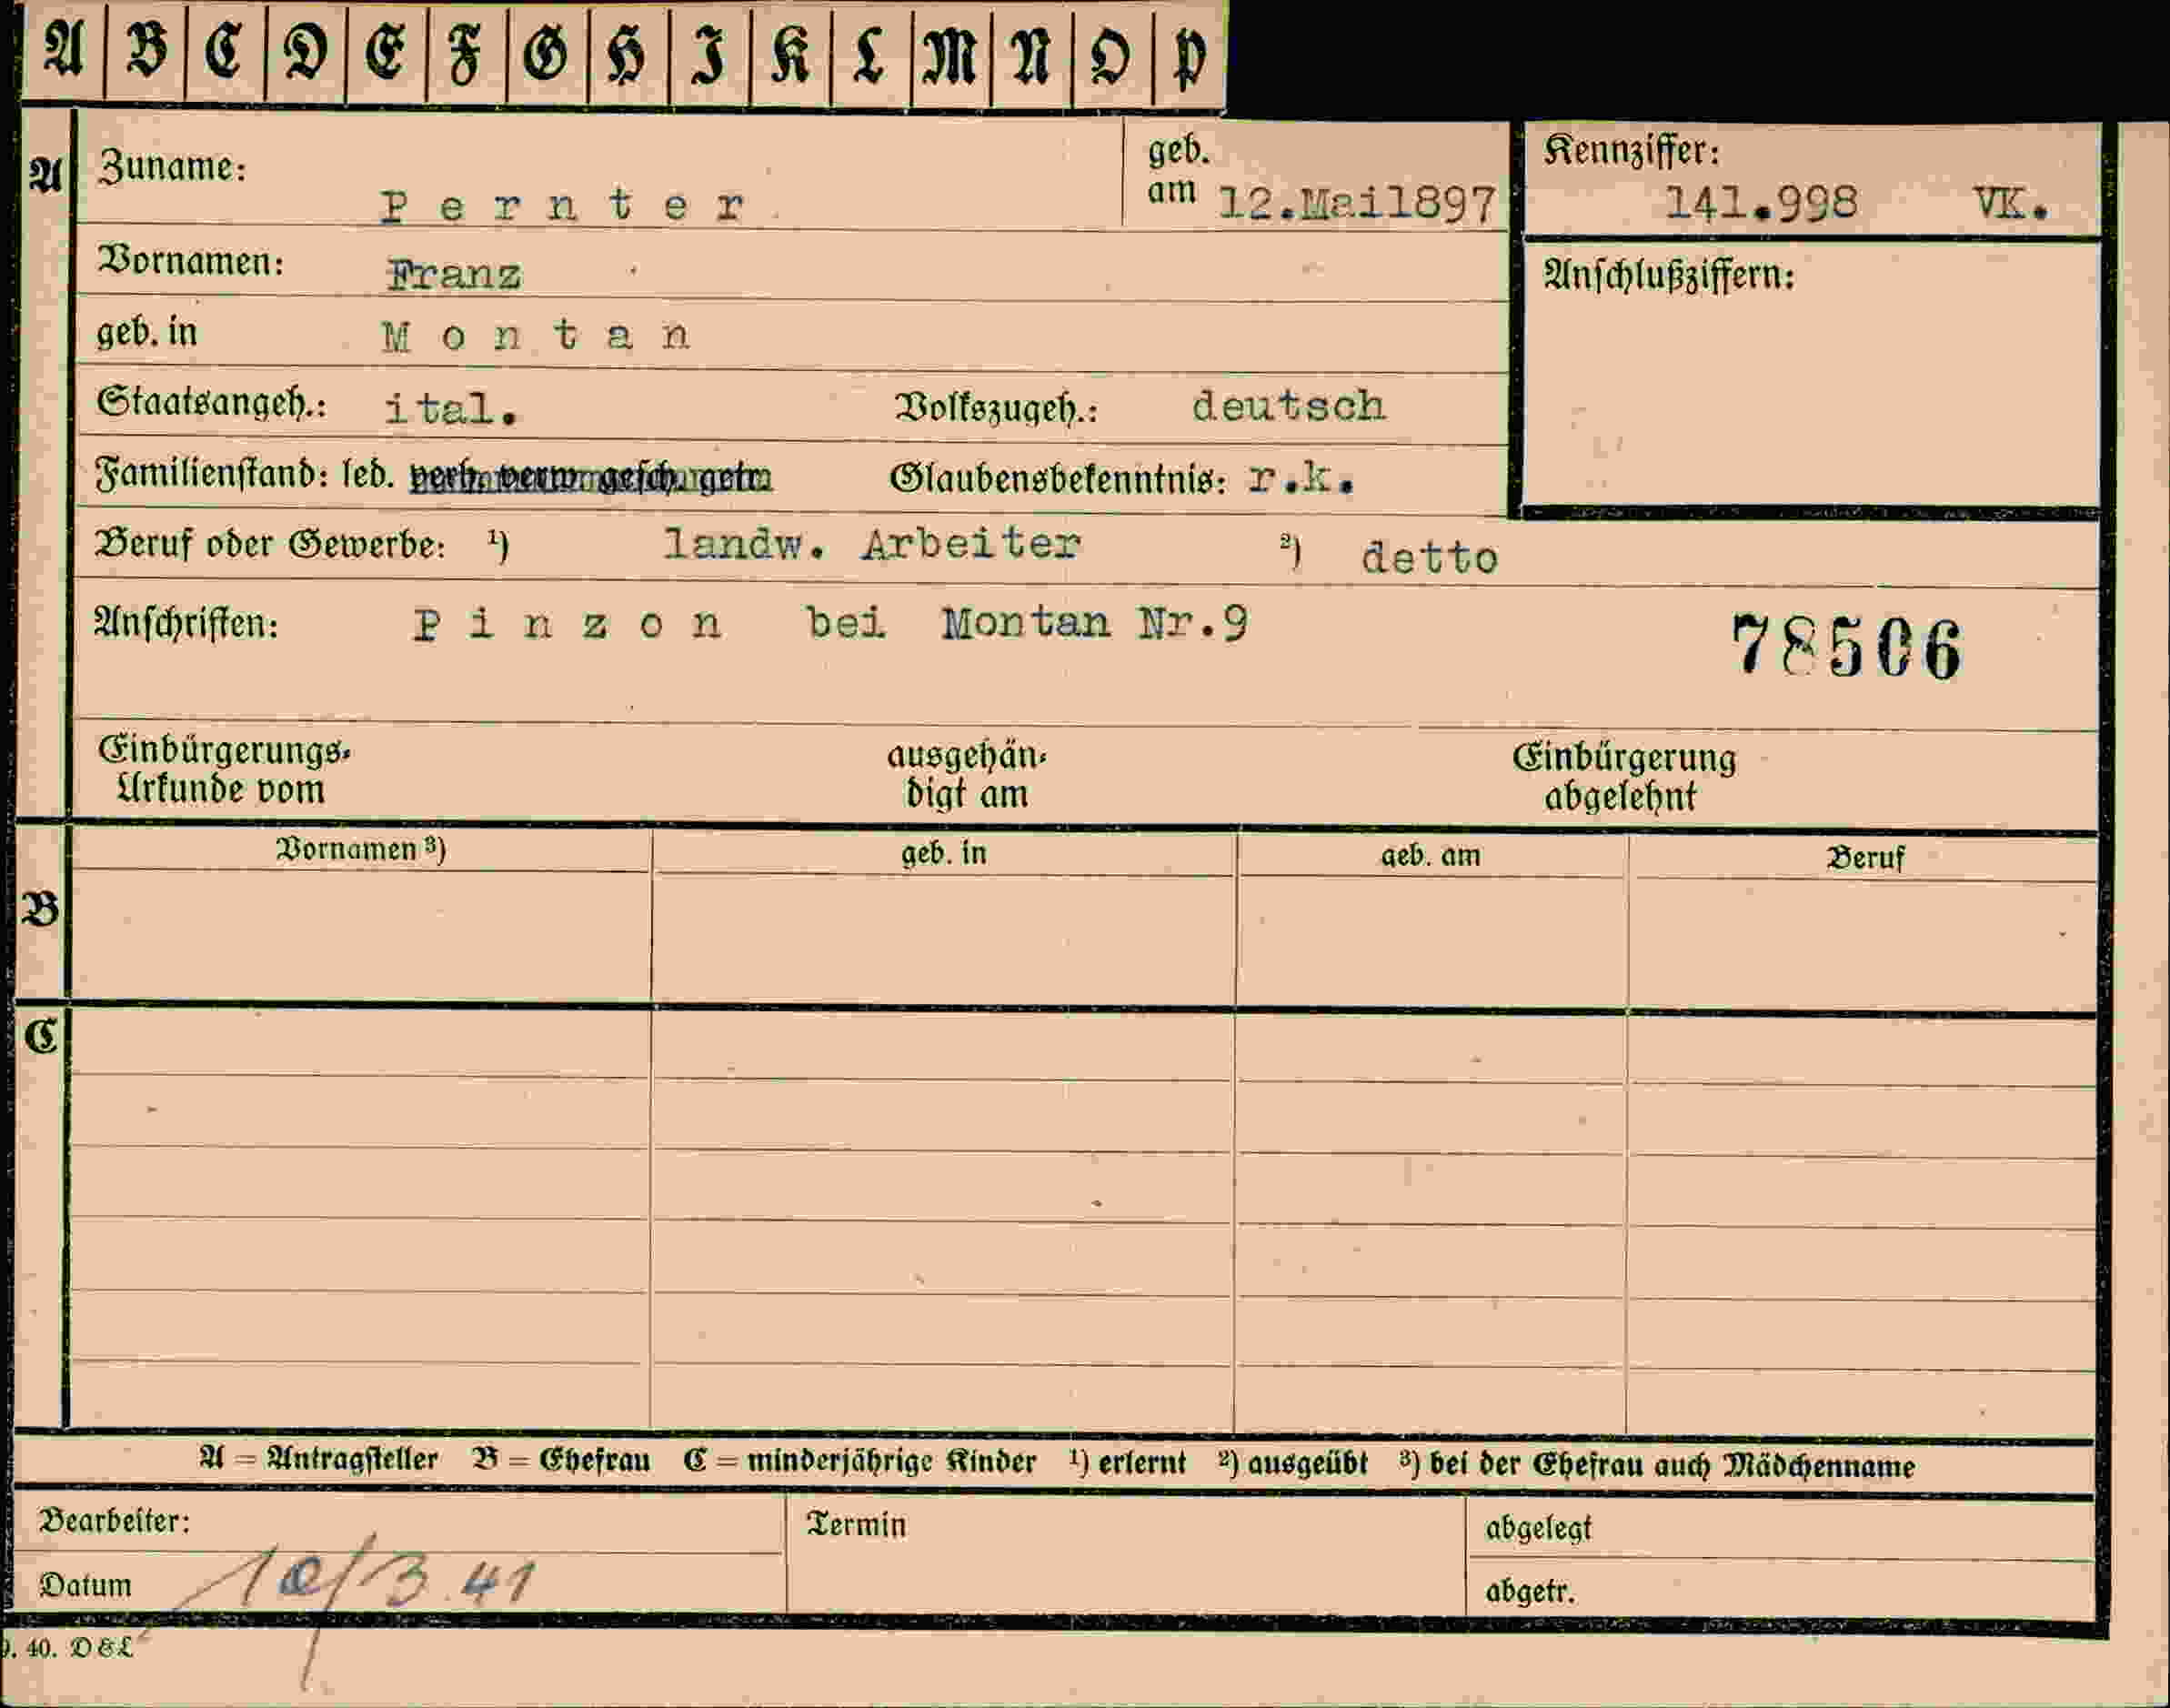 A B C D E F G H I K L M N O P
A Zuname: Pernter geb. am 12.Mai1897 Kennziffer: 141.998 VK.
Vornamen: Franz Anschlußziffern:
geb. in Montan
Staatsangeh.: ital. Volkszugeh.: deutsch
Familienstand: led. verh. verw. gesch. getr. Glaubensbekenntnis: r.k.
Beruf oder Gewerbe: ¹) landw. Arbeiter ²) detto
Anschriften: Pinzon bei Montan Nr.9 78506
Einbürgerungs- ausgehän- Einbürgerung
Urkunde vom digt am abgelehnt
Vornamen ³) geb. in geb. am Beruf
B
C
A = Antragsteller B = Ehefrau C = minderjährige Kinder ¹) erlernt ²) ausgeübt ³) bei der Ehefrau auch Mädchenname
Bearbeiter: Termin abgelegt
Datum 10/3.41 abgetr.
9. 40. D&L